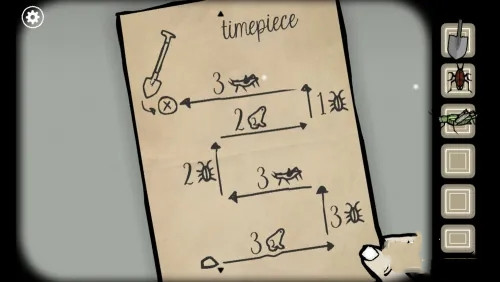 timepiece
3
1
2
2
3
3
3